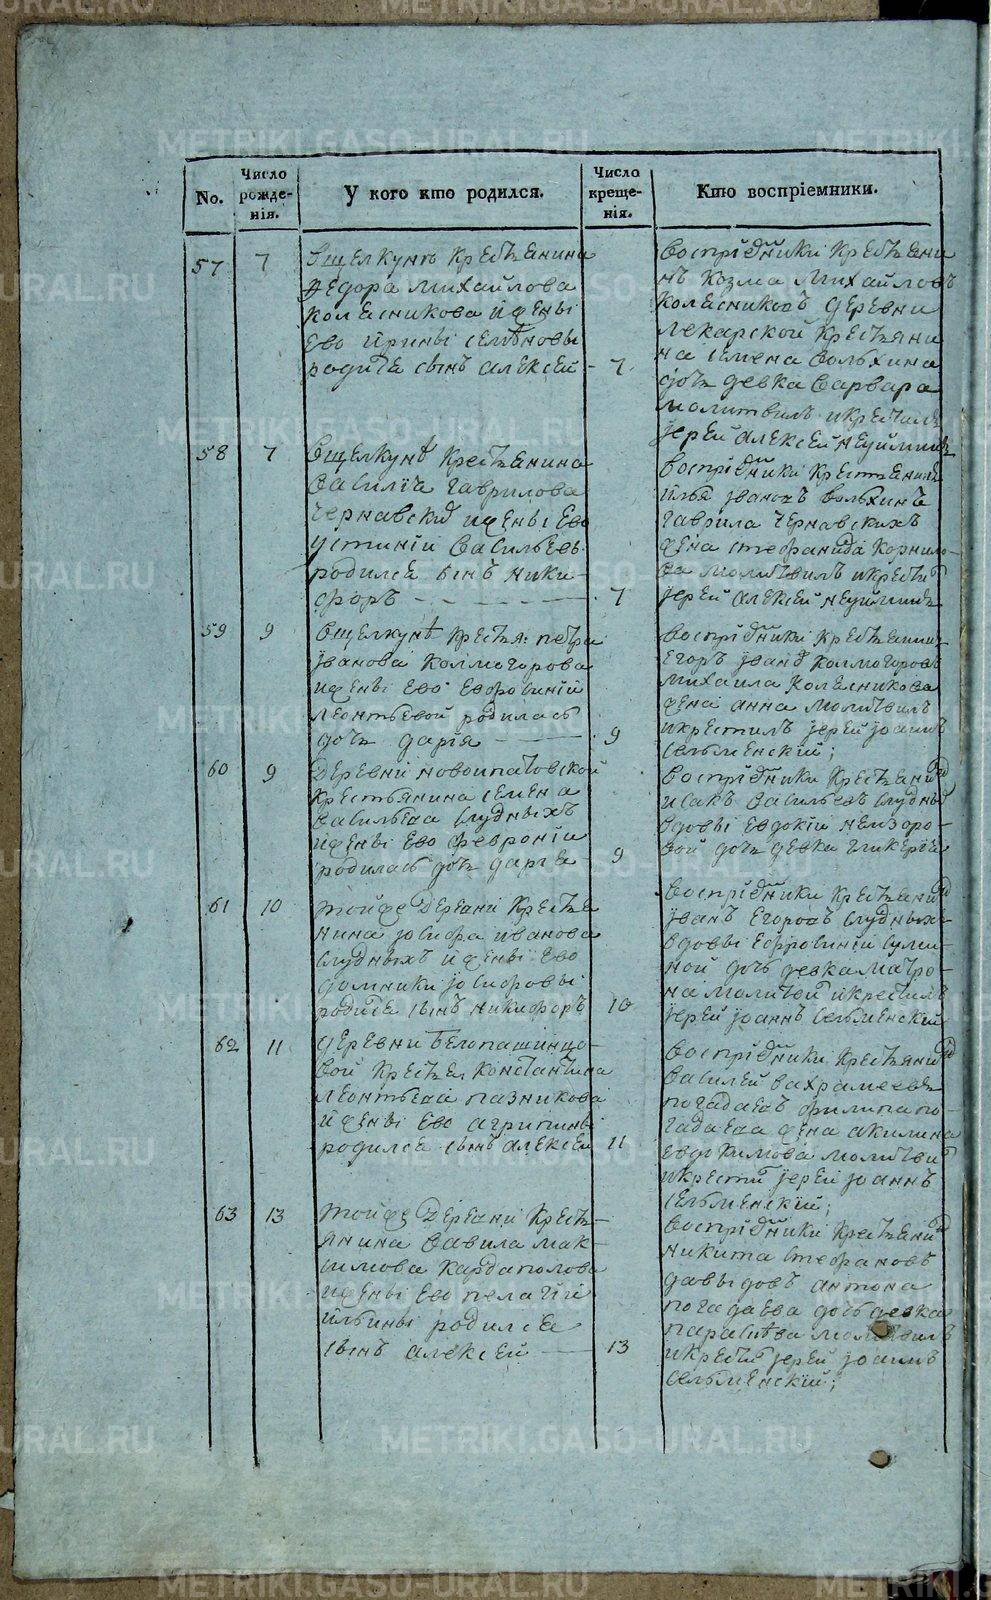 No.
Число рожде-нія.
У кого кто родился.
Число креще-нія.
Кто воспріемники.
57
7
Вщелкунѣ крестьянина
федора михайлова
колесникова и жены
ево ирины семеновы
родился сынъ алексей -
7
воспріемники крестьяни
нъ козма михайловъ
колесниковъ деревни
лекарской крестьяни
на семена вольхина
дочь девка варвара
молитвилъ и крестилъ
іерей алексей неуйминъ
58
7
Вщелкунѣ крестьянина
василиа гаврилова
чернавских и жены ево
устиніи васильевы
родился сынъ ники-
форъ
7
воспріемники крестьянинъ
илья івановъ вольхинъ
гаврила чернавскихъ
жена стефанида корнило-
ва молитвилъ и крестилъ
іерей алексей неуйминъ
59
9
Вщелкунѣ крестья: петра
іванова колмогорова
и жены ево евфросиніи
леонтьевой родилась
дочь дарія
9
воспріемники крестьянинъ
егоръ іванов колмогоровъ
михаила колесникова
жена анна молитвилъ
и крестилъ іерей іоаннъ
сельменскій;
60
9
деревни новоипатовской
крестьянина семена
васильева блудныхъ
и жены ево февроніи
родилась дочь дарья
9
воспріемники крестьянинъ
исакъ васильевъ блудных
вдовы евдокіи
дочь девка гликеріа
61
10
тойже деревни крестья
нина іосифа иванова
блудныхъ и жены ево
домники іосифовы
родился сынъ никифоръ
10
воспріемники крестьянинъ
іванъ егоровъ блудныхъ
вдовы ефросиніи
дочь девка матро-
на молитвил и крестилъ
іерей іоаннъ сельменскій
62
11
деревни белопашинцо-
вой крестья константина
леонтьева пазникова
и жены ево агрипины
родился сынъ алексей
11
воспріемники крестьянинъ
василей вахрамеевъ
погадаевъ филипа по-
гадаева жена акилина
евдокимова молитвил
и крестил іерей іоаннъ
сельменскій;
63
13
тойже деревни кресть-
янина савила мак-
симова кардаполова
и жены ево пелагіи
ильины родился
сынъ алексей
13
воспріемники крестьянинъ
никита стефановъ
давыдовъ антона
погадаева дочь девка
парасковья молитвилъ
и крестил іерей іоаннъ
сельменскій;
METRIKI.GASO-URAL.RU